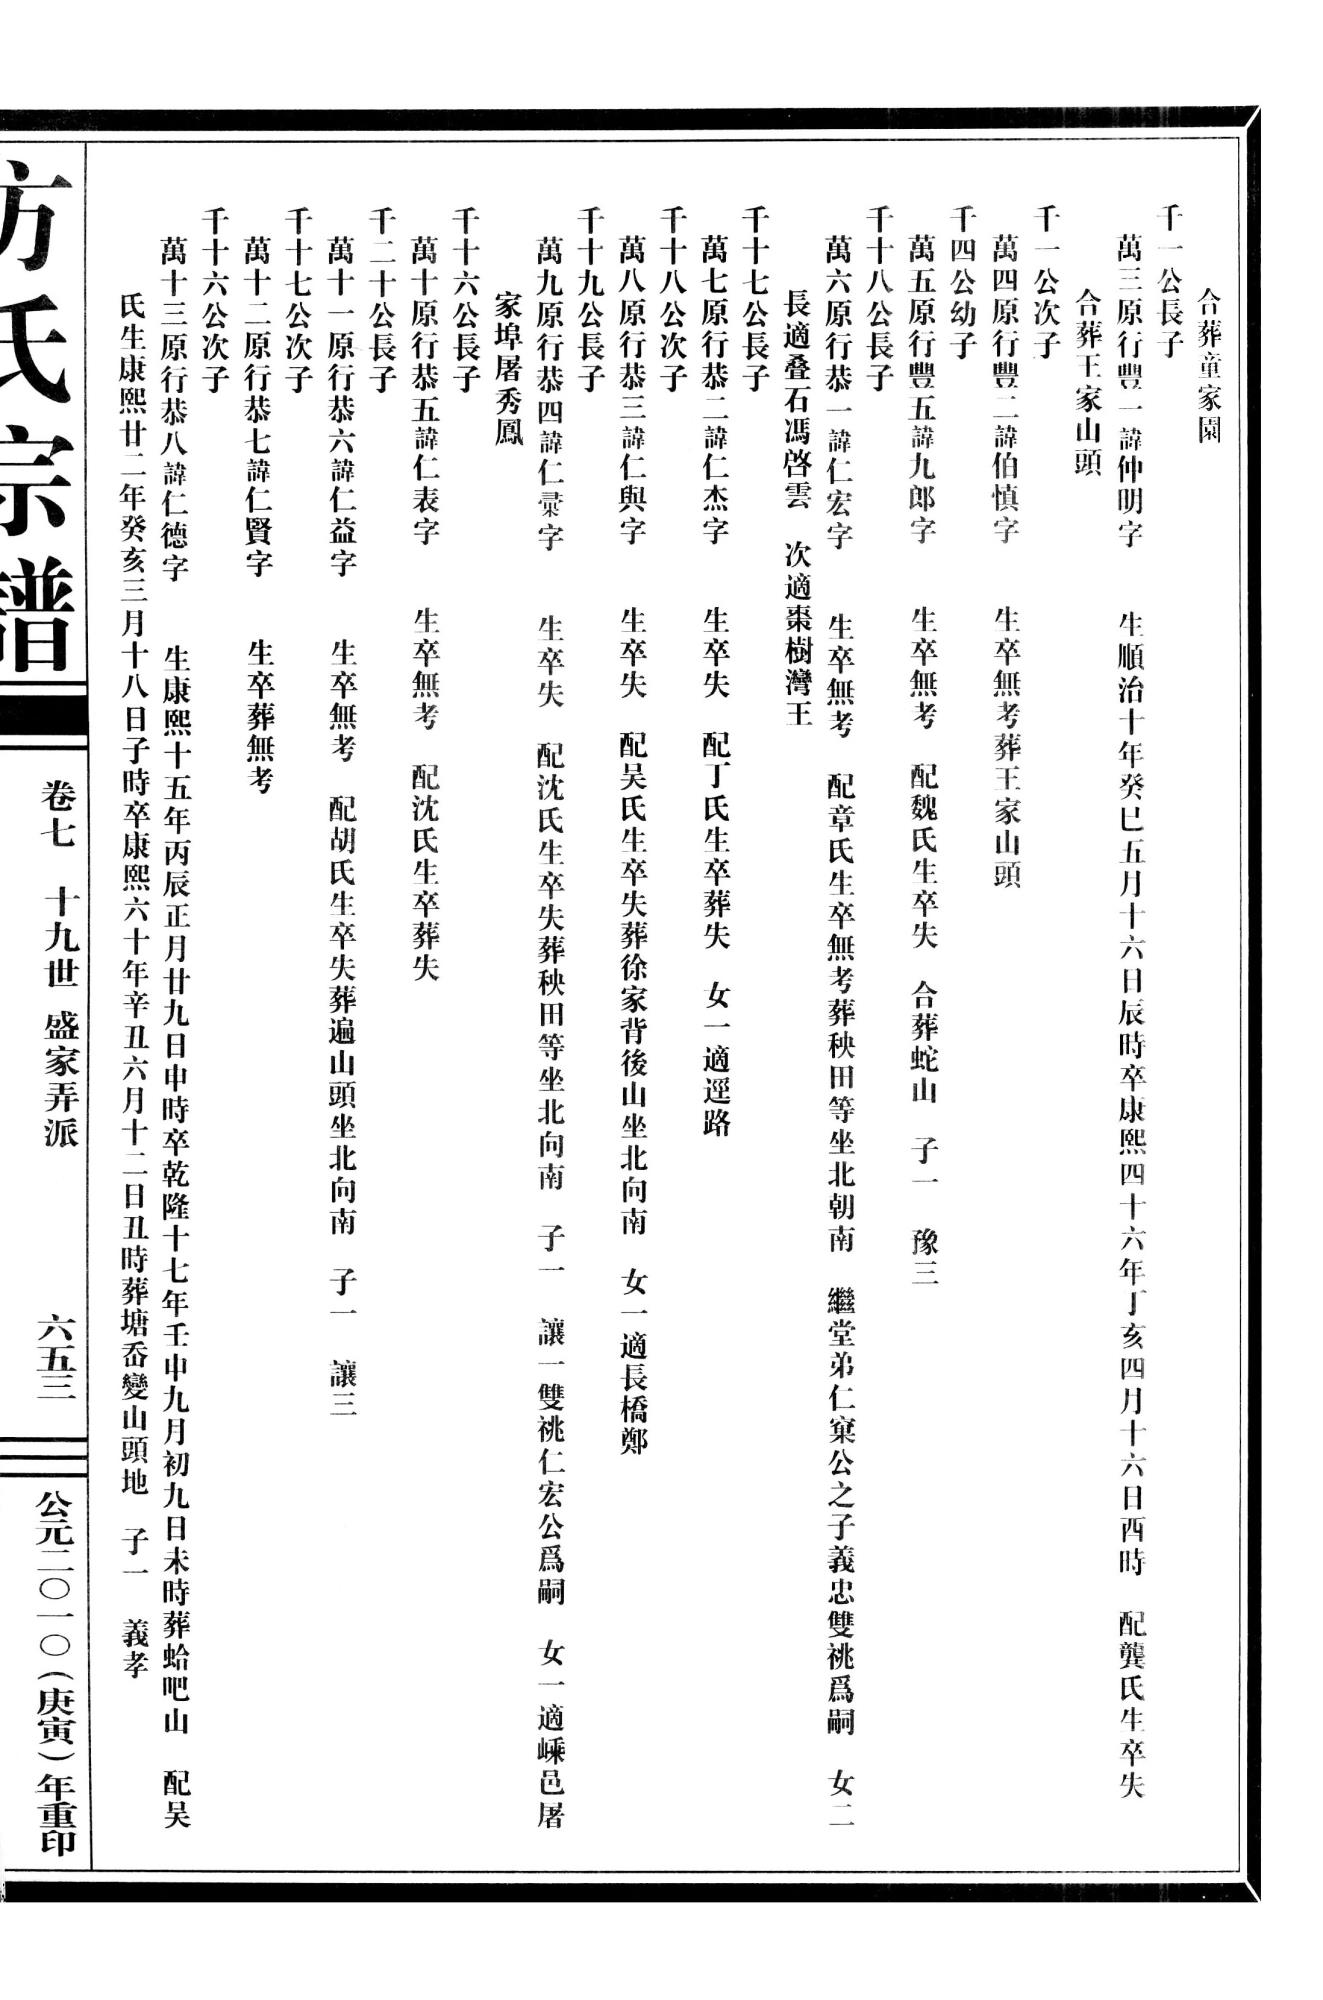 合葬童家園
千一公長子
萬三原行豐一諱仲明字　生順治十年癸巳五月十六日辰時卒康熙四十六年丁亥四月十六日酉時　配龔氏生卒失
合葬王家山頭
千一公次子
萬四原行豐二諱伯慎字　生卒無考葬王家山頭
千四公幼子
萬五原行豐五諱九郎字　生卒無考　配魏氏生卒失　合葬蛇山　子一　豫三
千十八公長子
萬六原行恭一諱仁宏字　生卒無考　配章氏生卒無考葬秧田等坐北朝南　繼堂弟仁窠公之子義忠雙祧爲嗣　女二
長適叠石馮啓雲　次適棗樹灣王
千十七公長子
萬七原行恭二諱仁杰字　生卒失　配丁氏生卒葬失　女一適逕路
千十八公次子
萬八原行恭三諱仁與字　生卒失　配吴氏生卒失葬徐家背後山坐北向南　女一適長橋鄭
千十九公長子
萬九原行恭四諱仁字　生卒失　配沈氏生卒失葬秧田等坐北向南　子一　讓一雙祧仁宏公爲嗣　女一適嵊邑屠
家埠屠秀鳳
千十六公長子
萬十原行恭五諱仁表字　生卒無考　配沈氏生卒葬失
千二十公長子
萬十一原行恭六諱仁益字　生卒無考　配胡氏生卒失葬遍山頭坐北向南　子一　讓三
千十七公次子
萬十二原行恭七諱仁賢字　生卒葬無考
千十六公次子
萬十三原行恭八諱仁德字　生康熙十五年丙辰正月廿九日申時卒乾隆十七年壬申九月初九日未時葬蛤吧山　配吴
氏生康熙廿二年癸亥三月十八日子時卒康熙六十年辛丑六月十二日丑時葬塘岙變山頭地　子一　義孝
方氏宗譜
卷七　十九世　盛家弄派
六五三
公元二〇一〇（庚寅）年重印